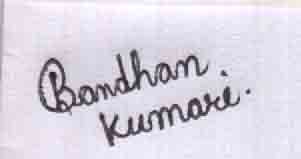 Bandhan.
Kumari.